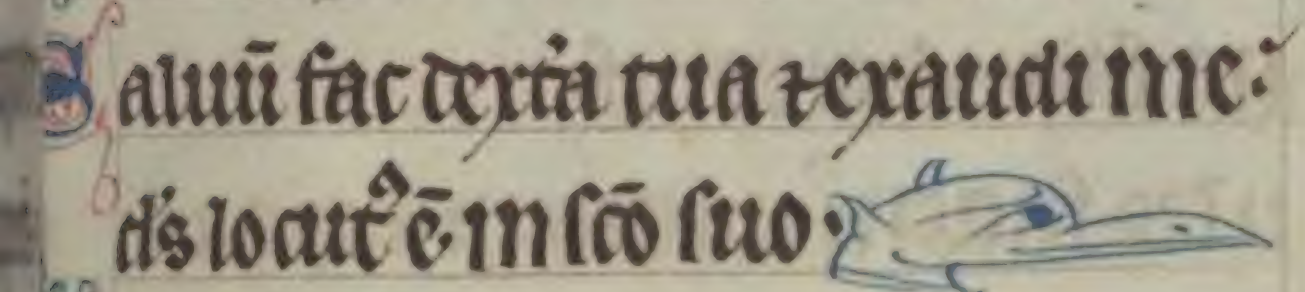 Saluū fac dext̛a tua ⁊ exaudi me:
d̛s locutꝰ ē in sc̄o suo.